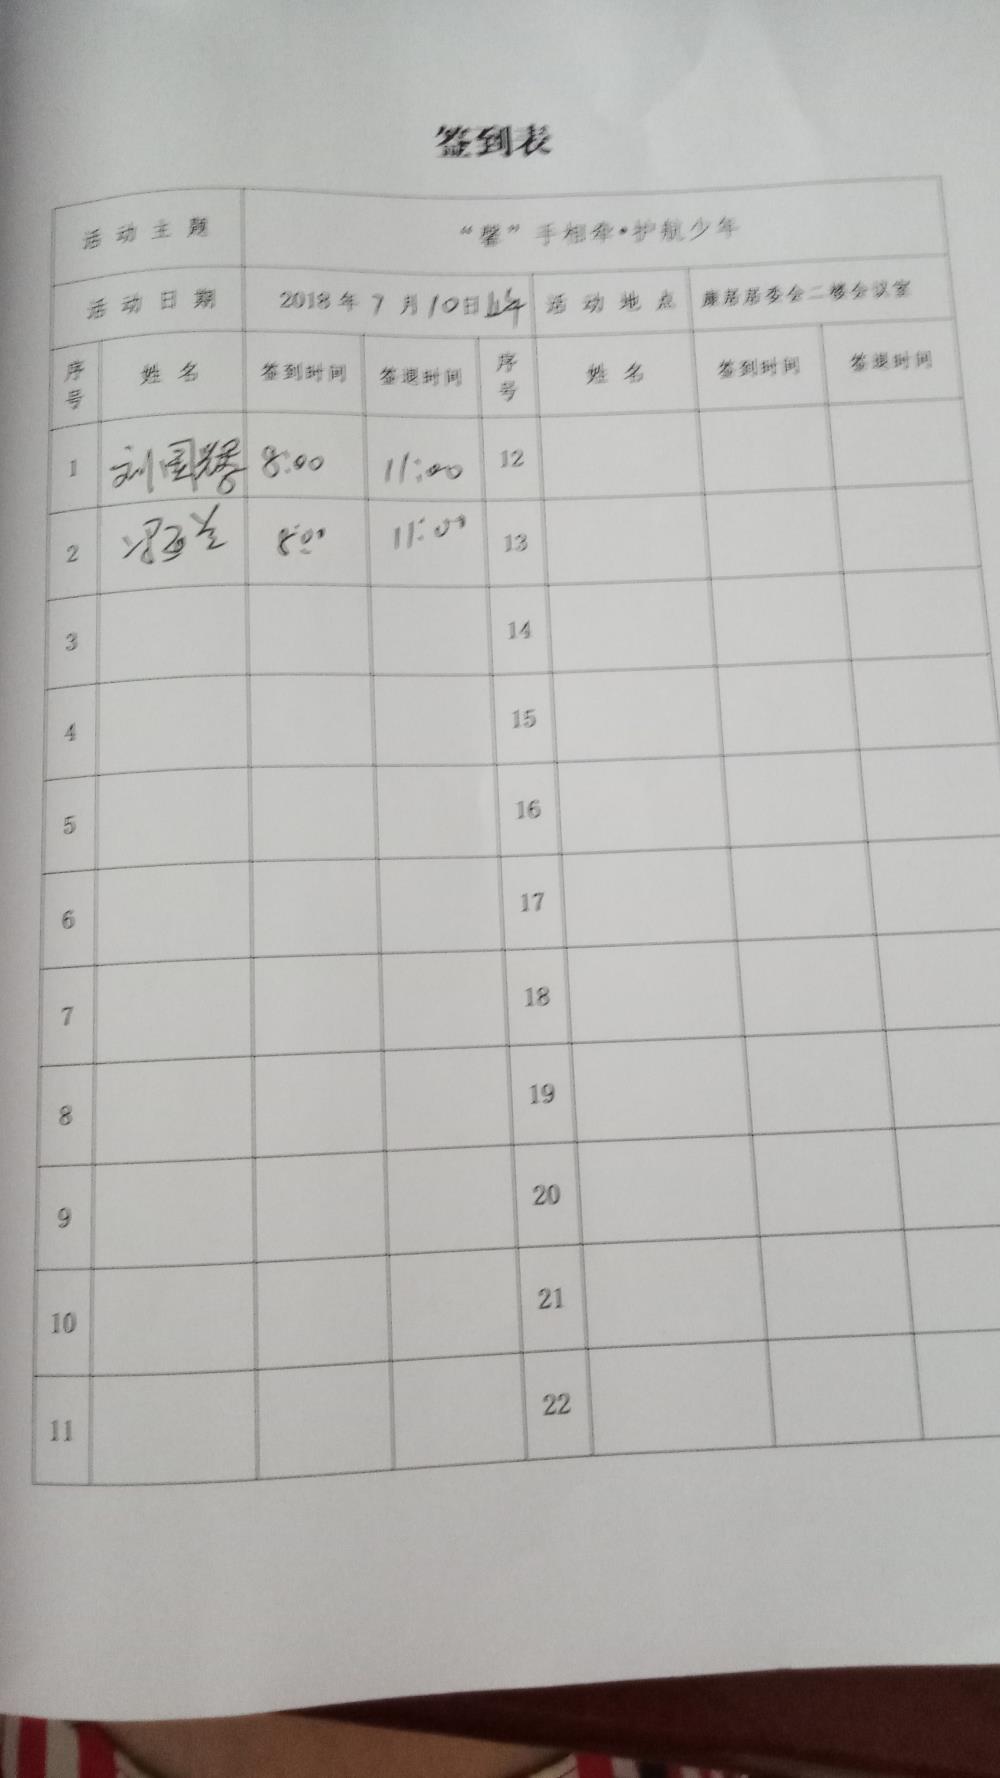 签到表
活动主题 “馨”手相牵•护航少年
活动日期 2018年7月10日上午 活动地点 康居居委会二楼会议室
序号 姓名 签到时间 签退时间 序号 姓名 签到时间 签退时间
1 刘国馨 8:00 11:00 12
2 8:00 11:00 13
3 14
4 15
5 16
6 17
7 18
8 19
9 20
10 21
11 22